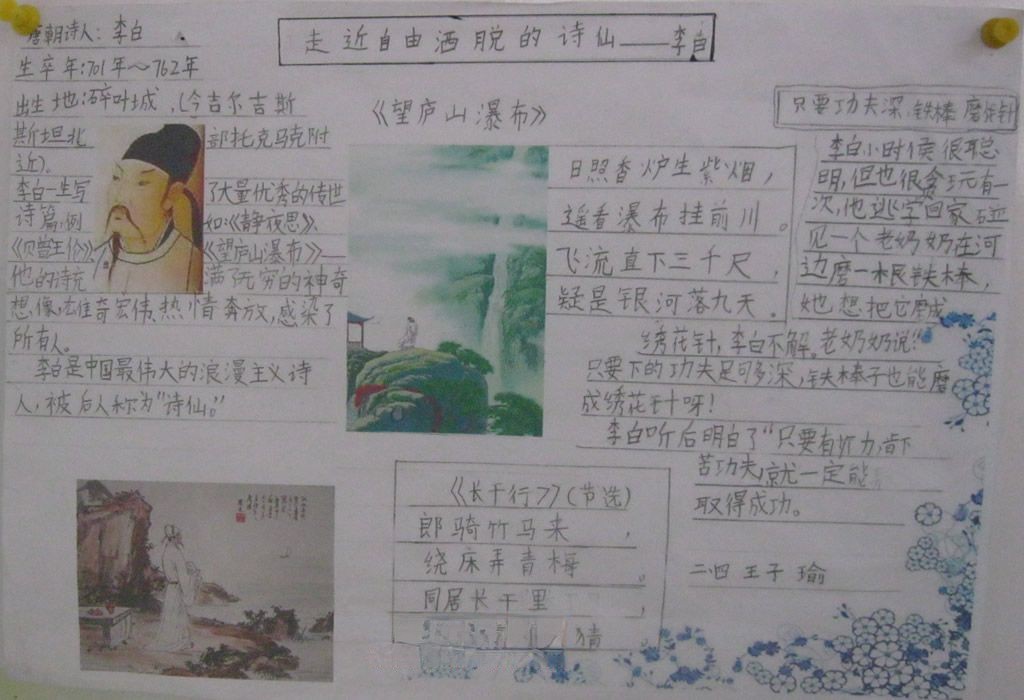 走近自由洒脱的诗仙——李白
唐朝诗人：李白
生卒年：701年～762年
出生地：碎叶城，（今吉尔吉斯
斯坦北部托克马克附
近）。
李白一生写了大量优秀的传世
诗篇，例如：《静夜思》、
《望庐山瀑布》——
他的诗充满了无穷的神奇
想像，雄奇宏伟、热情奔放，感染了
所有人。
李白是中国最伟大的浪漫主义诗
人，被后人称为“诗仙。”
《望庐山瀑布》
日照香炉生紫烟，
遥看瀑布挂前川。
飞流直下三千尺，
疑是银河落九天。
只要功夫深，铁棒磨成针
李白小时候很聪
明，但也很贪玩有一
次，他逃学回家碰
见一个老奶奶在河
边磨一根铁棒，
她想把它磨成
绣花针，李白不解。老奶奶说：“
只要下的功夫足够多深，铁棒子也能磨
成绣花针呀！
李白听后明白了“只要有毅力，肯下
苦功夫，就一定能
取得成功。
《长干行》（节选）
郎骑竹马来，
绕床弄青梅。
同居长干里，
猜
二四 王子瑜